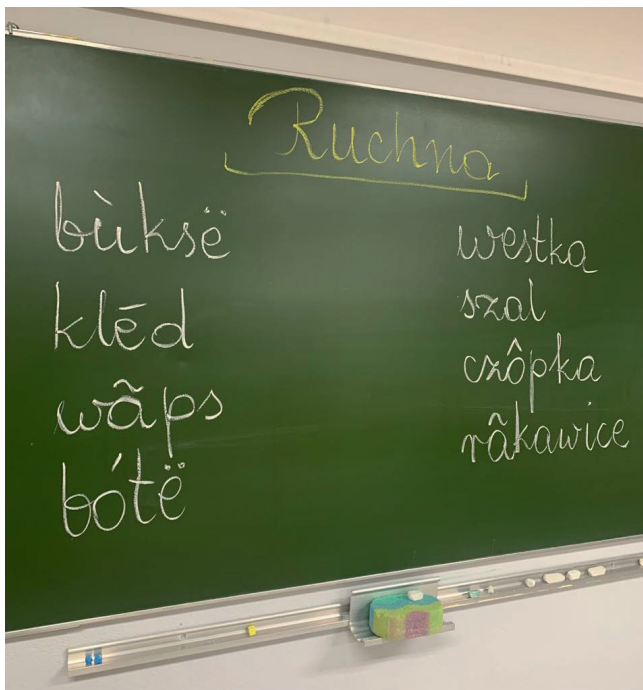 Ruchna
bùksë
klēd
wãps
bótë
westka
szal
czôpka
rãkawice